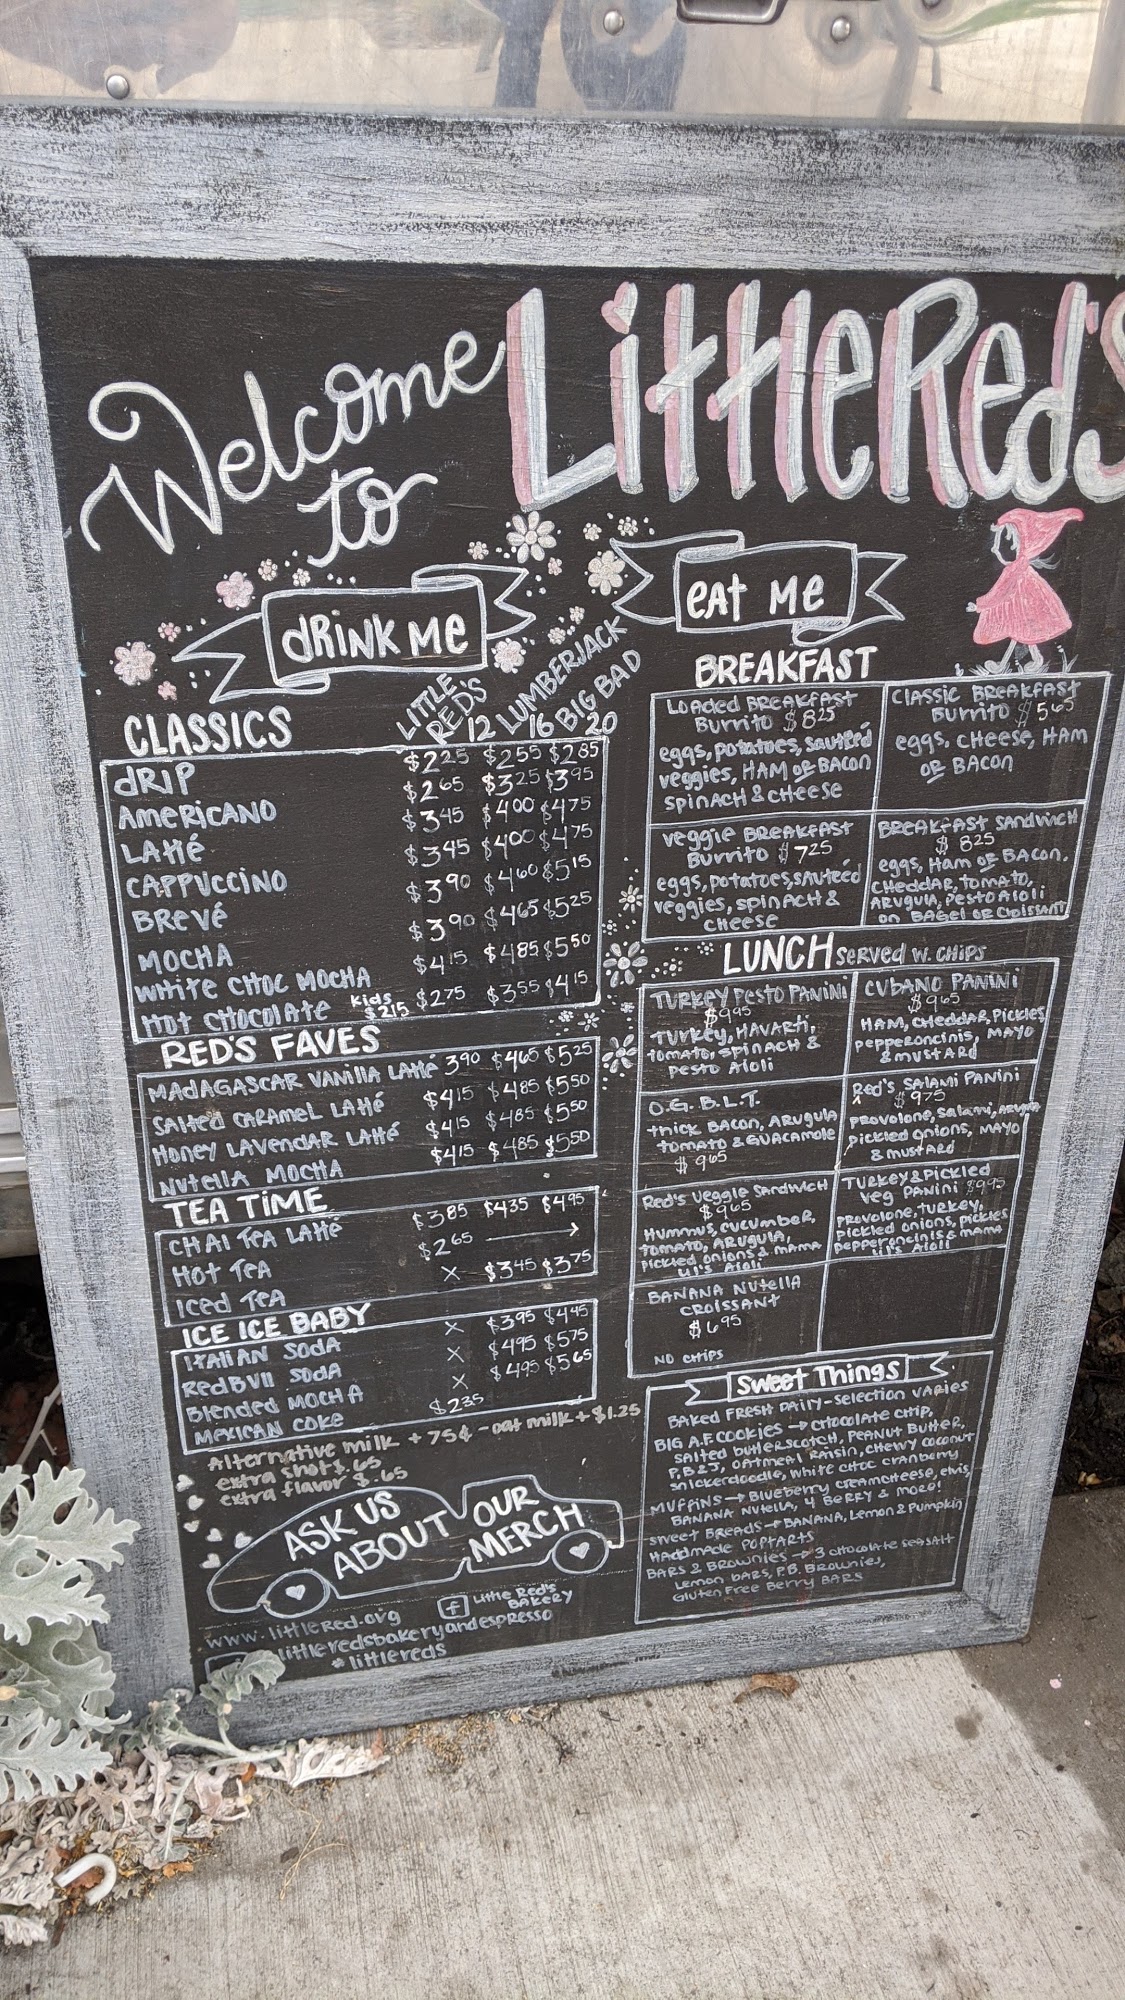 Welcome to Little Red's
drink me
LITTLE RED'S 12 LUMBERJACK 16 BIG BAD 20
CLASSICS
DRIP $2.25 $2.55 $2.85
AMERICANO $2.65 $3.25 $3.95
LATTÉ $3.45 $4.00 $4.75
CAPPUCCINO $3.45 $4.00 $4.75
BREVÉ $3.90 $4.60 $5.15
MOCHA $3.90 $4.65 $5.25
WHITE CHOC MOCHA $4.15 $4.85 $5.50
HOT CHOCOLATE Kids $2.15 $2.75 $3.55 $4.15
RED'S FAVES
MADAGASCAR VANILLA LATTÉ 3.90 $4.65 $5.25
SALTED CARAMEL LATTÉ $4.15 $4.85 $5.50
HONEY LAVENDAR LATTÉ $4.15 $4.85 $5.50
NUTELLA MOCHA $4.15 $4.85 $5.50
TEA TIME
CHAI TEA LATTÉ $3.85 $4.35 $4.95
HOT TEA $2.65 →
ICED TEA X $3.45 $3.75
ICE ICE BABY
ITALIAN SODA X $3.95 $4.45
REDBULL SODA X $4.95 $5.75
BLENDED MOCHA X $4.95 $5.65
MEXICAN COKE $2.35
Alternative milk + 75¢ - oat milk + $1.25
extra shot $.65
extra flavor $.65
ASK US ABOUT OUR MERCH
f Little Red's BAKERY
www.littleRed.org
littleredsbakeryandespresso
#littlereds
eat me
BREAKFAST
LOADED BREAKFAST
BURRITO $8.25
eggs, potatoes, sautéed
veggies, HAM OR BACON
SPINACH & CHEESE
CLASSIC BREAKFAST
BURRITO $5.65
eggs, CHEESE, HAM
OR BACON
Veggie BREAKFAST
BURRITO $7.25
eggs, potatoes, sautéed
veggies, SPINACH &
CHEESE
BREAKFAST SANDWICH
$8.25
eggs, Ham OR Bacon,
CHEDDAR, TOMATO,
ARUGULA, PESTO AIOLI
ON BAGEL OR CROISSANT
LUNCH SERVED W. CHIPS
TURKEY PESTO PANINI
$9.95
TURKEY, HAVARTI,
tomato, SPINACH &
PESTO AIOLI
CUBANO PANINI
$9.65
HAM, CHEDDAR, PICKLES
PEPPERONCINIS, MAYO
& MUSTARD
O.G. B.L.T.
THICK BACON, ARUGULA
TOMATO & GUACAMOLE
$9.65
Red's SALAMI PANINI
$9.75
PROVOLONE, SALAMI, ARUGULA
PICKLED ONIONS, MAYO
& MUSTARD
Red's Veggie SANDWICH
$9.65
HUMMUS, CUCUMBER,
TOMATO, ARUGULA,
PICKLED ONIONS & MAMA
LIL'S AIOLI
TURKEY & PICKLED
VEG PANINI $9.95
PROVOLONE, TURKEY,
PICKLED ONIONS, PICKLES
PEPPERONCINIS & MAMA
LIL'S AIOLI
BANANA NUTELLA
CROISSANT
$6.95
NO CHIPS
Sweet Things
BAKED FRESH DAILY-SELECTION VARIES
BIG A.F. COOKIES → CHOCOLATE CHIP,
SALTED BUTTERSCOTCH, PEANUT BUTTER,
OATMEAL RAISIN, CHEWY COCONUT
SNICKERDOODLE, WHITE CHOC CRANBERRY
MUFFINS → BLUEBERRY CREAMCHEESE, ELVIS,
BANANA NUTELLA, 4 BERRY & MORE!
SWEET BREADS → BANANA, LEMON & PUMPKIN
HANDMADE POPTARTS
BARS & BROWNIES → 3 CHOCOLATE SEASALT
LEMON BARS, P.B. BROWNIES,
GLUTEN FREE BERRY BARS